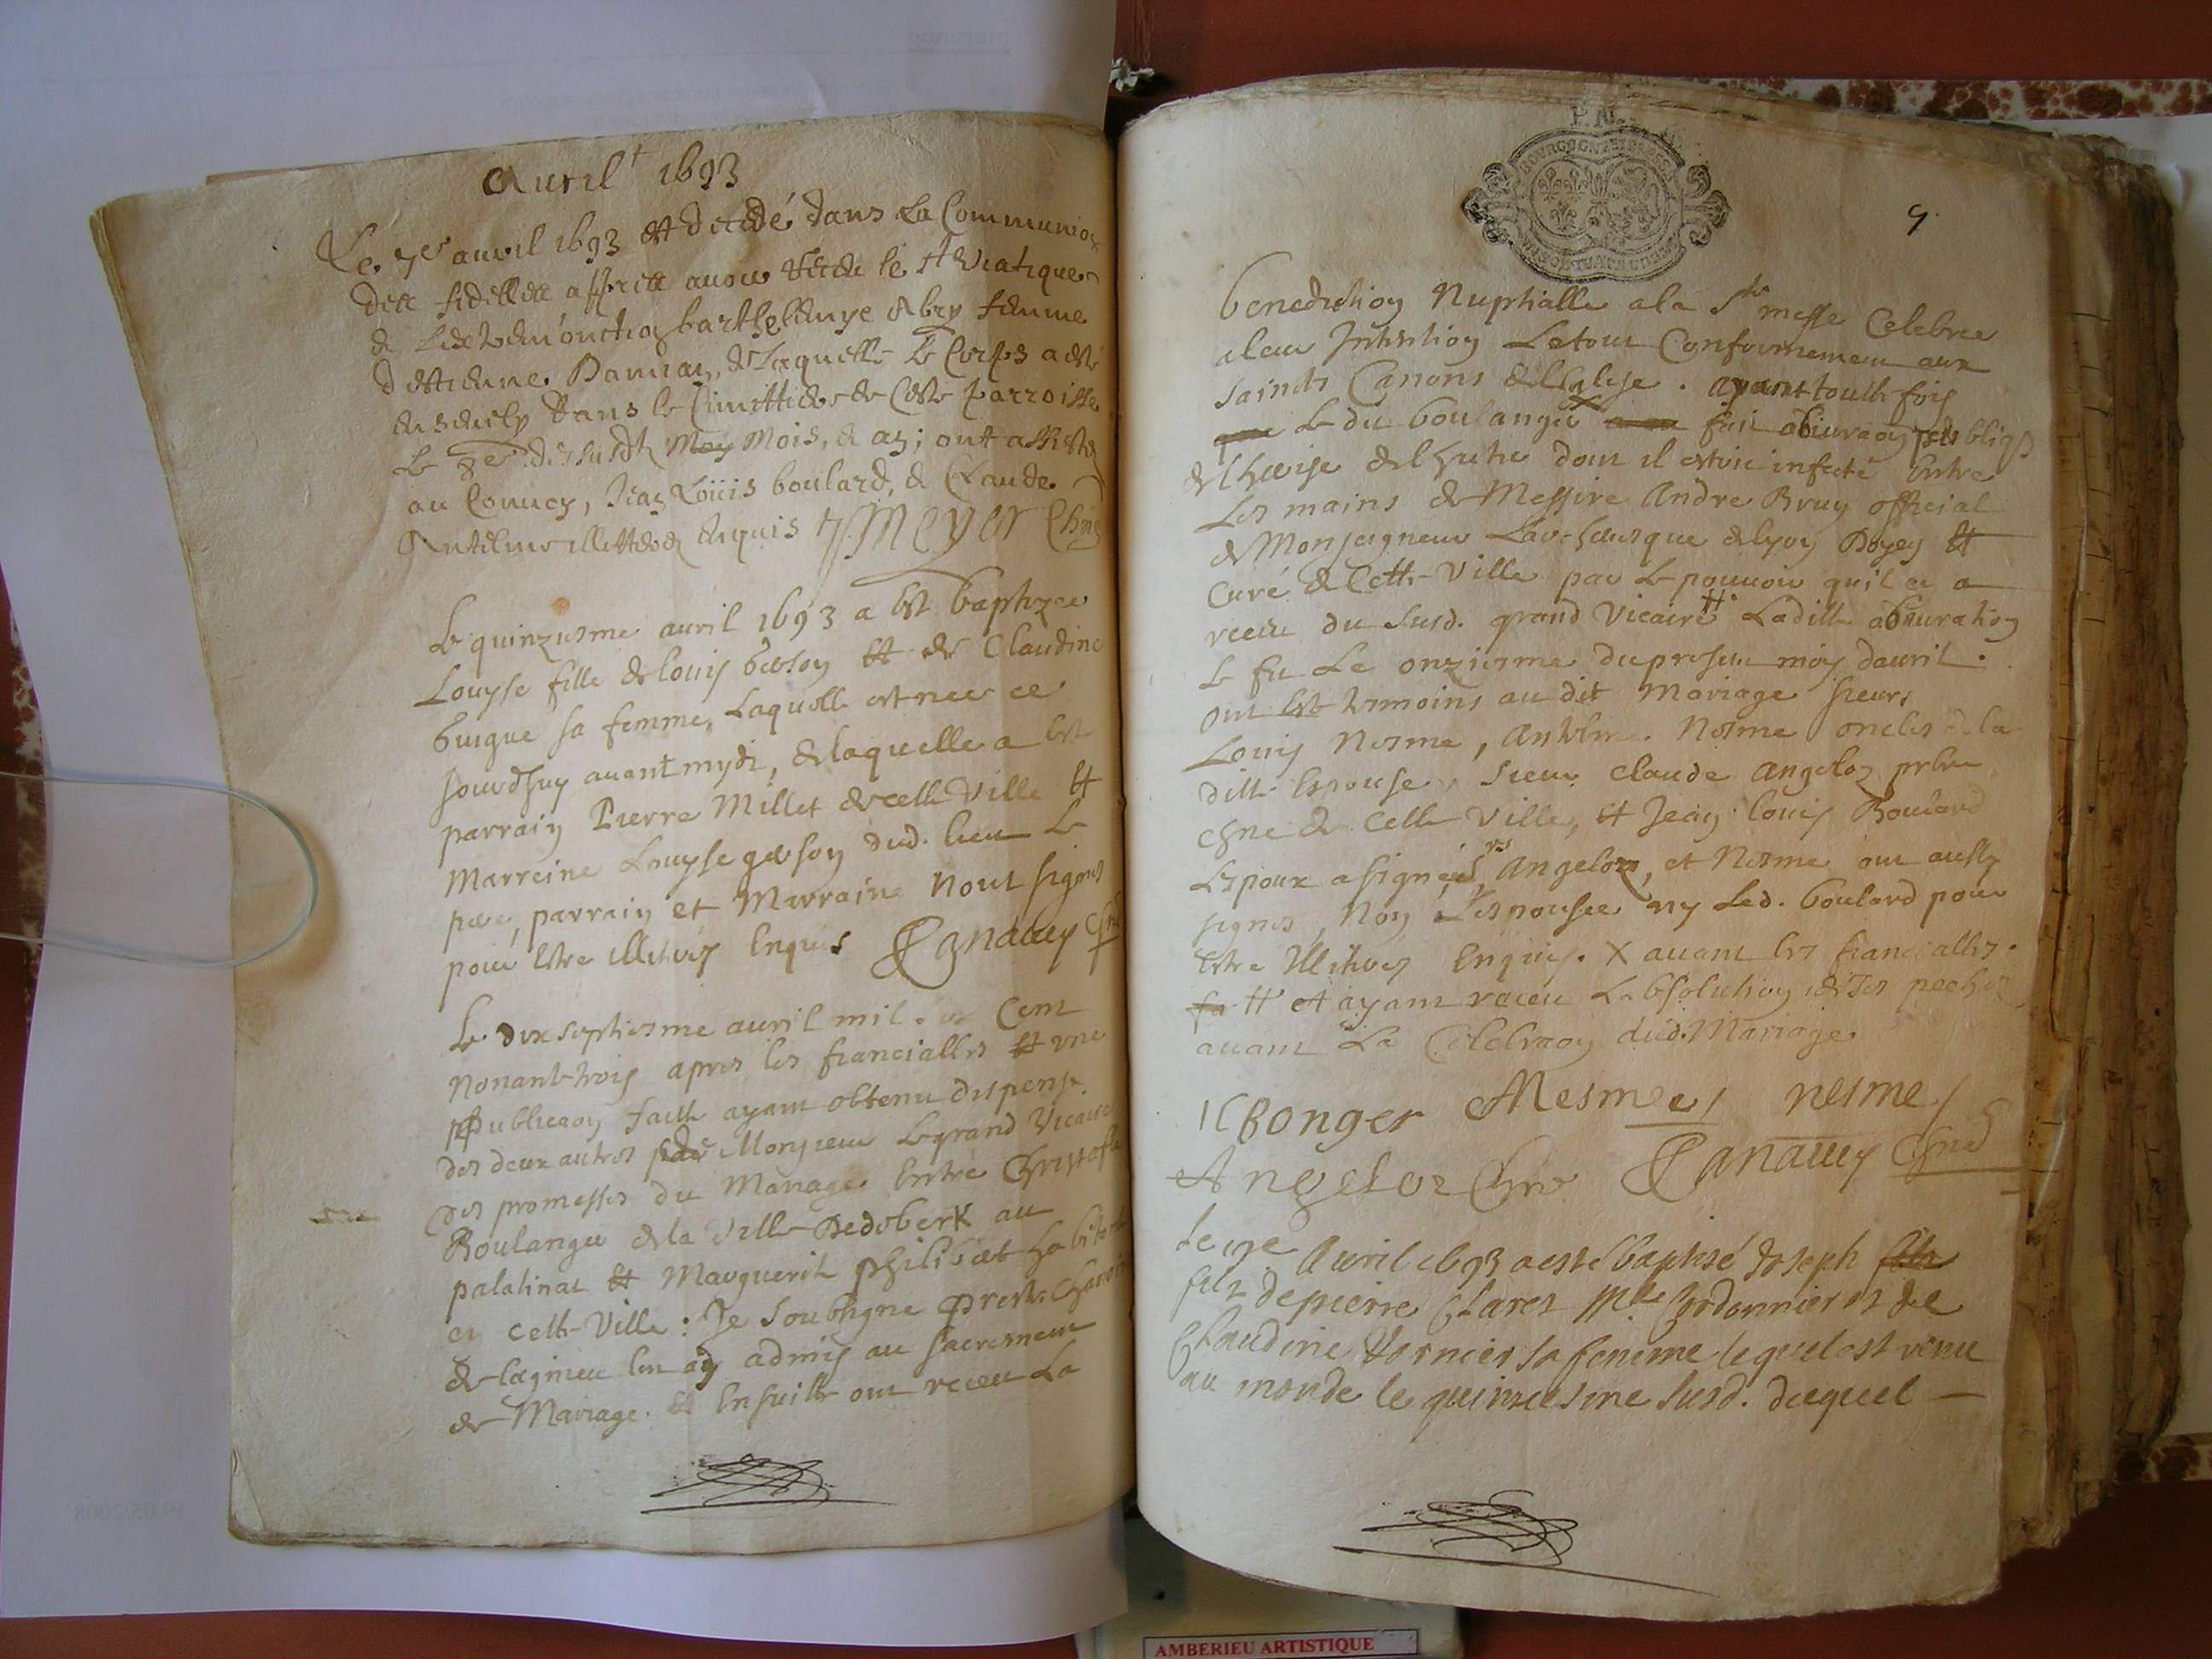 Avril 1693
Le 7e auvril 1693 est décédé dans La Communion
des fidelles appres avoir receu le st Viatique
& barthelemye femme
d'estienne de Laquelle Le Corps a esté
ensevely dans le Cimittiere de Ceste parroisse
Le 8e dessusdt Moy Mois, & an; ont assisté
au Convoy, Jean Loüis boulard, & Claude
illetterez enquis Meyer Chne
Le quinziesme avril 1693 a est baptizee
Louyse fille de louis & de Claudine
sa femme, Laquelle est nee ce
jourdhuy avant mydi, de laquelle a est
parrain Pierre Millet de cette Ville et
Marreine Louyse dud. lieu Le
pere, parrain et Marraine Nont signes
pour estre illiteres Enquis Canauey Chne
Le dix septiesme avril mil six Cent
nonant trois apres les fiancialles et une
publicaon faitte ayant obtenu dispense
des deux autres de Monsieur Le grand Vicaire
des promesses du Mariage Entre Christofle
Boulanger de la Ville Dedoberk au
palatinat et Marguerite philibert habitante
en cette Ville: Je soubsigne prestre Chanoine
de lagnieu les ay admis au sacrement
de Mariage. et Ensuitte ont receu La
P.M.
BOURGOGNE ET BRESSE
9.
benediction Nuptialle a la Ste messe Celebree
a leur Intention Letout Conformement aux
saincts Canons de leglise. ayant toutte fois
que Le dit boulanger X fait abiuraon publiq
de Lheresie dont il estoit infecté Entre
Les mains de Messire Andre Bruy official
de Monseigneur de lyon Doyen et
Curé de Cette Ville par Le pouvoir quil en a
receu du susd. grand Vicaire # Laditte abiuration
Le fu Le onziesme du present moy davril.
ont Est tesmoins au dit Mariage sieurs
Louis Nesme, Antelme Nesme oncles de la
ditte Espouse, sieur Claude Angeloz prbre
chne de Cette Ville, et Jean louis Boulard
Lespoux a signé, Angeloz, et Nesme ont aussy
signes, Non Lespousee ny Led. boulard pour
estre Illiteres Enquis. X avant les fiancialles.
# et ayant receu Labsolution de ses pechez
avant La Celebraon dud. Mariage
Bonger Mesme nesme
Angeloz Chne Canauey Chne
Le 17e Avril 1693 a esté baptisé Joseph
filz de pierre Claret Mre Cordonnier et de
Claudine Vornier sa femme lequel est venu
au monde le quinziesme susd. duquel —
AMBERIEU ARTISTIQUE